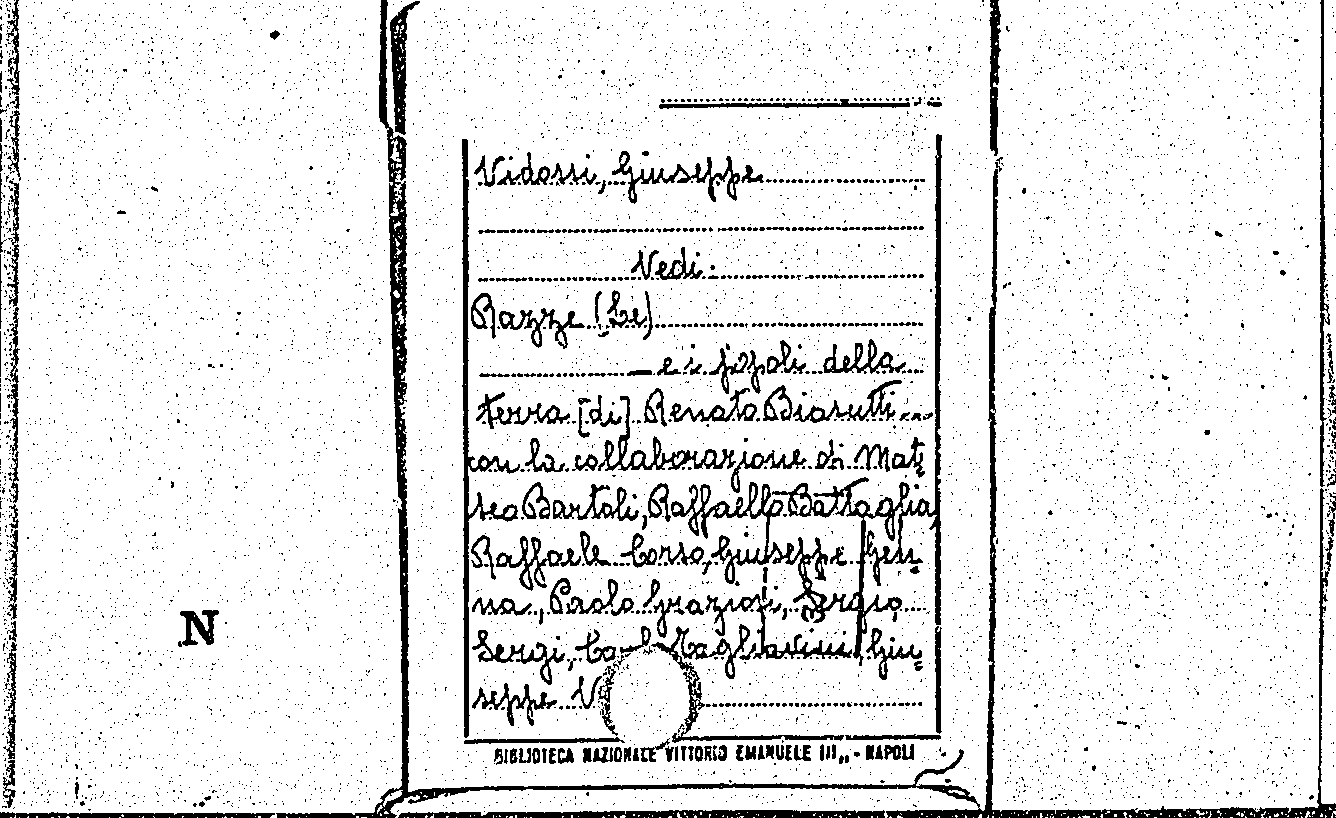 Vidossi, Giuseppe
Vedi:
Razze (Le)
— e i popoli della
terra [di] Renato Biasutti...
con la collaborazione di Mat=
teo Bartoli, Raffaello Battaglia,
Raffaele Corso, Giuseppe Gen=
na, Paolo Graziosi, Sergio
Sergi, Carlo Tagliavini, Giu=
seppe V
N
BIBLIOTECA NAZIONALE VITTORIO EMANUELE III„ - NAPOLI